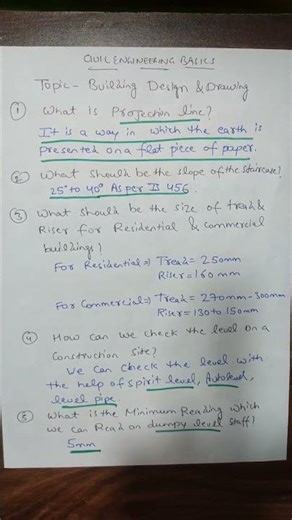 CIVIL ENGINEERING BASICS
Topic - Building Design & Drawing
① What is Projection line?
It is a way in which the earth is
presented on a flat piece of paper.
② What should be the slope of the staircase?
25° to 40° As per IS 456.
③ What should be the size of tread &
Riser for Residential & commercial
buildings?
For Residential ⇒ Tread = 250mm
Riser = 160 mm
For Commercial ⇒ Tread = 270mm - 300mm
Riser = 130 to 150mm
④ How can we check the level on a
Construction site?
We can check the level with
the help of spirit level, Autolevel,
level pipe.
⑤ What is the Minimum Reading which
we can Read on dumpy level staff?
5mm